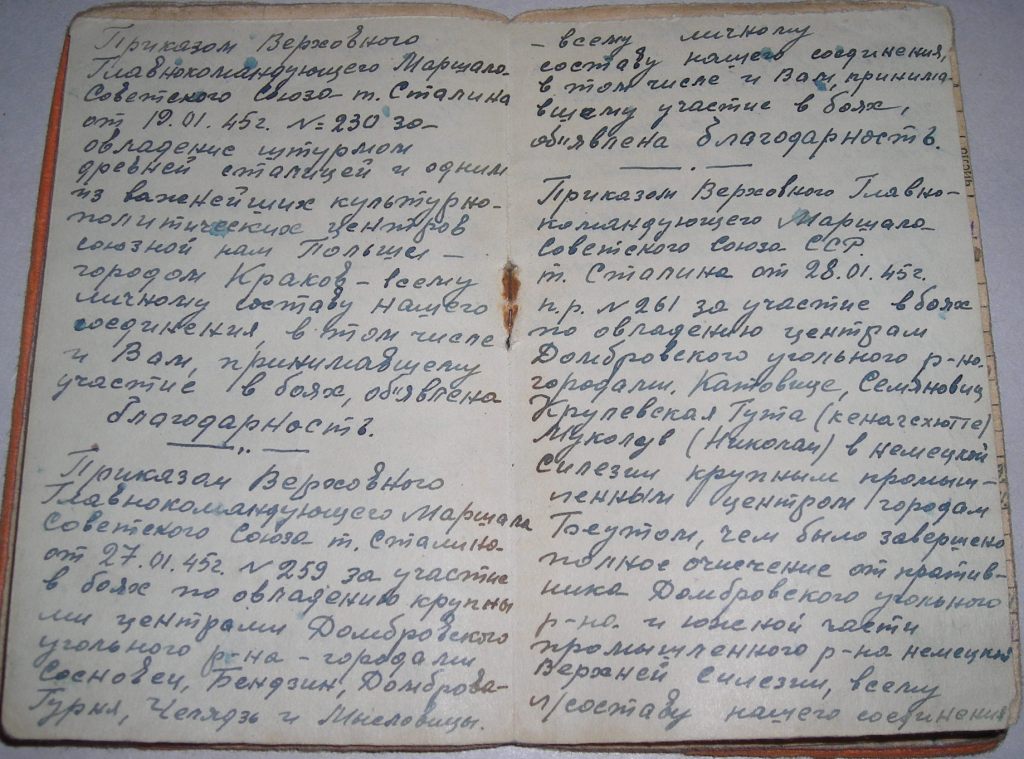 Приказом Верховного
Главнокомандующего Маршала
Советского Союза т. Сталина
от 19.01.45г. №230 за-
овладение штурмом
древней сталицей и одним
из важнейших культурно-
политических центров
союзной нам Польши —
городом Краков - всему
личному составу нашего
соединения, в том числе
и Вам, принимавшему
участие в боях, об"явлена
благодарность.
Приказам Верховного
Главнокомандующего Маршала
Советского Союза т. Сталина
от 27.01.45г. №259 за участие
в боях по овладению крупны
ми центрами Домбровского
угольного р-на - городами
Сосновец, Бендзин, Домброва-
Гурня, Челядзь и Мысловицы.
- всему личному
составу нашего соединения,
в том числе и Вам, принима-
вшему участие в боях,
об"явлена благодарность.
Приказом Верховного Главно-
командующего Маршала
Советского Союза ССР.
т. Сталина от 28.01.45г.
п.р. №261 за участие в боях
по овладению центрам
Домбровского угольного р-на.
городами, Катовице, Семяновиц
Крулевская Гута (кенигсхютте)
Муколув (Николаи) в немецкой
силезии крупным промыш-
ленным центром городам
Беутом, чем было завершено
полное очисчение от против-
ника Домбровского угольного
р-на. и южной части
промышленного р-на немецкой
Верхней Силезии, всему
л/составу нашего соединения
число